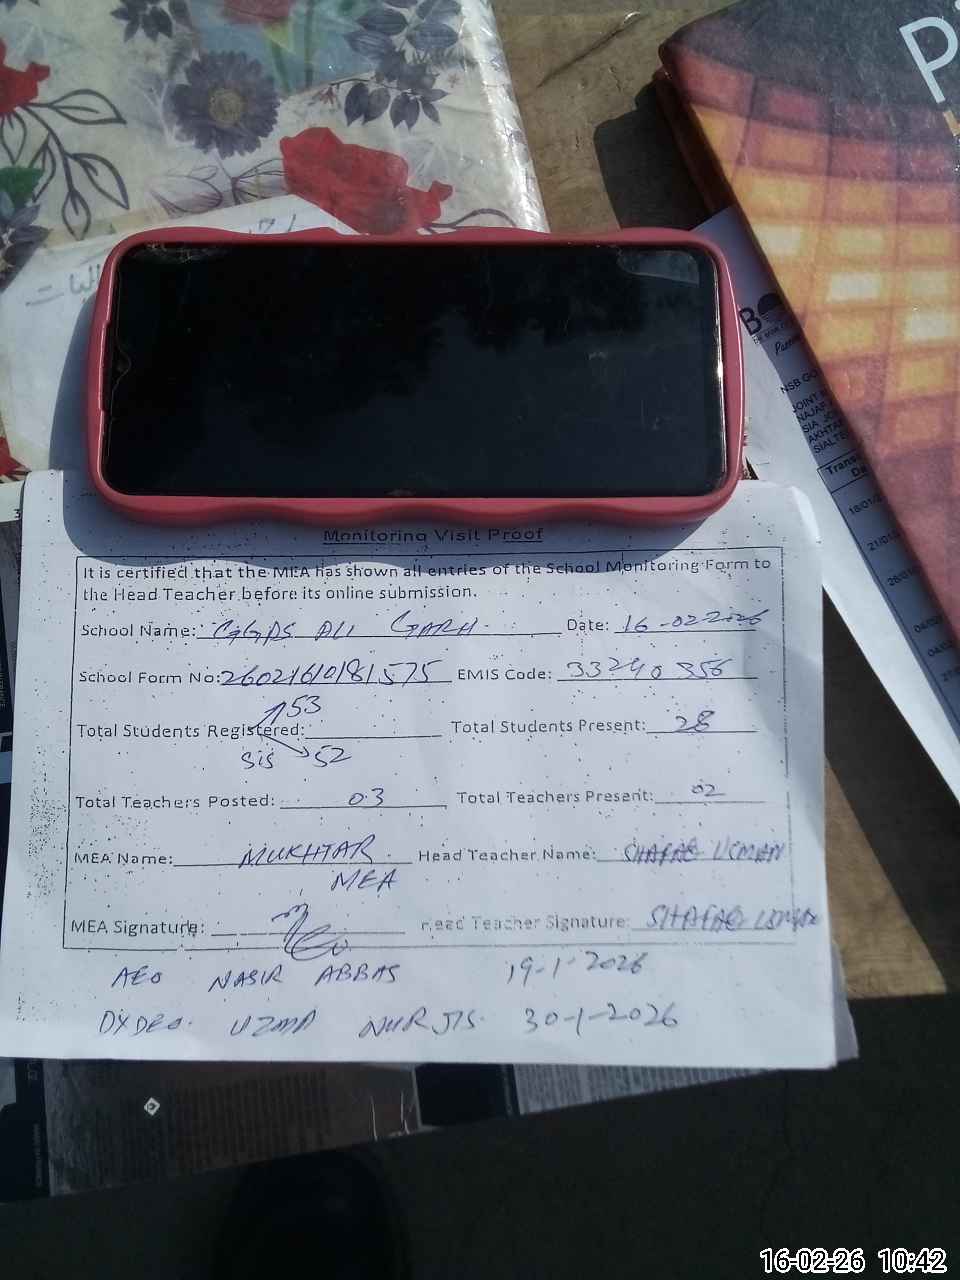 Pi
طالبات
B
NSB GO
JOINT
NAJAF
SIA JO
AKHTA
SIALTE
Trans
Da
18/01/2
21/01
28/01
04/02
04/02
Monitoring Visit Proof
It is certified that the MEA has shown all entries of the School Monitoring Form to
the Head Teacher before its online submission.
School Name: GGPS ALI GARH. Date: 16-02-2026
School Form No: 26021610181575 EMIS Code: 33240356
Total Students Registered: 53 Total Students Present: 28
SIS 52
Total Teachers Posted: 03 Total Teachers Present: 02
MEA Name: MUKHTAR Head Teacher Name: SHAFAQ USMAN
MEA
MEA Signature: Head Teacher Signature: SHAFAQ USMAN
AEO NASIR ABBAS 19-1-2026
DYDEO. UZMA NURJIS. 30-1-2026
16-02-26 10:42